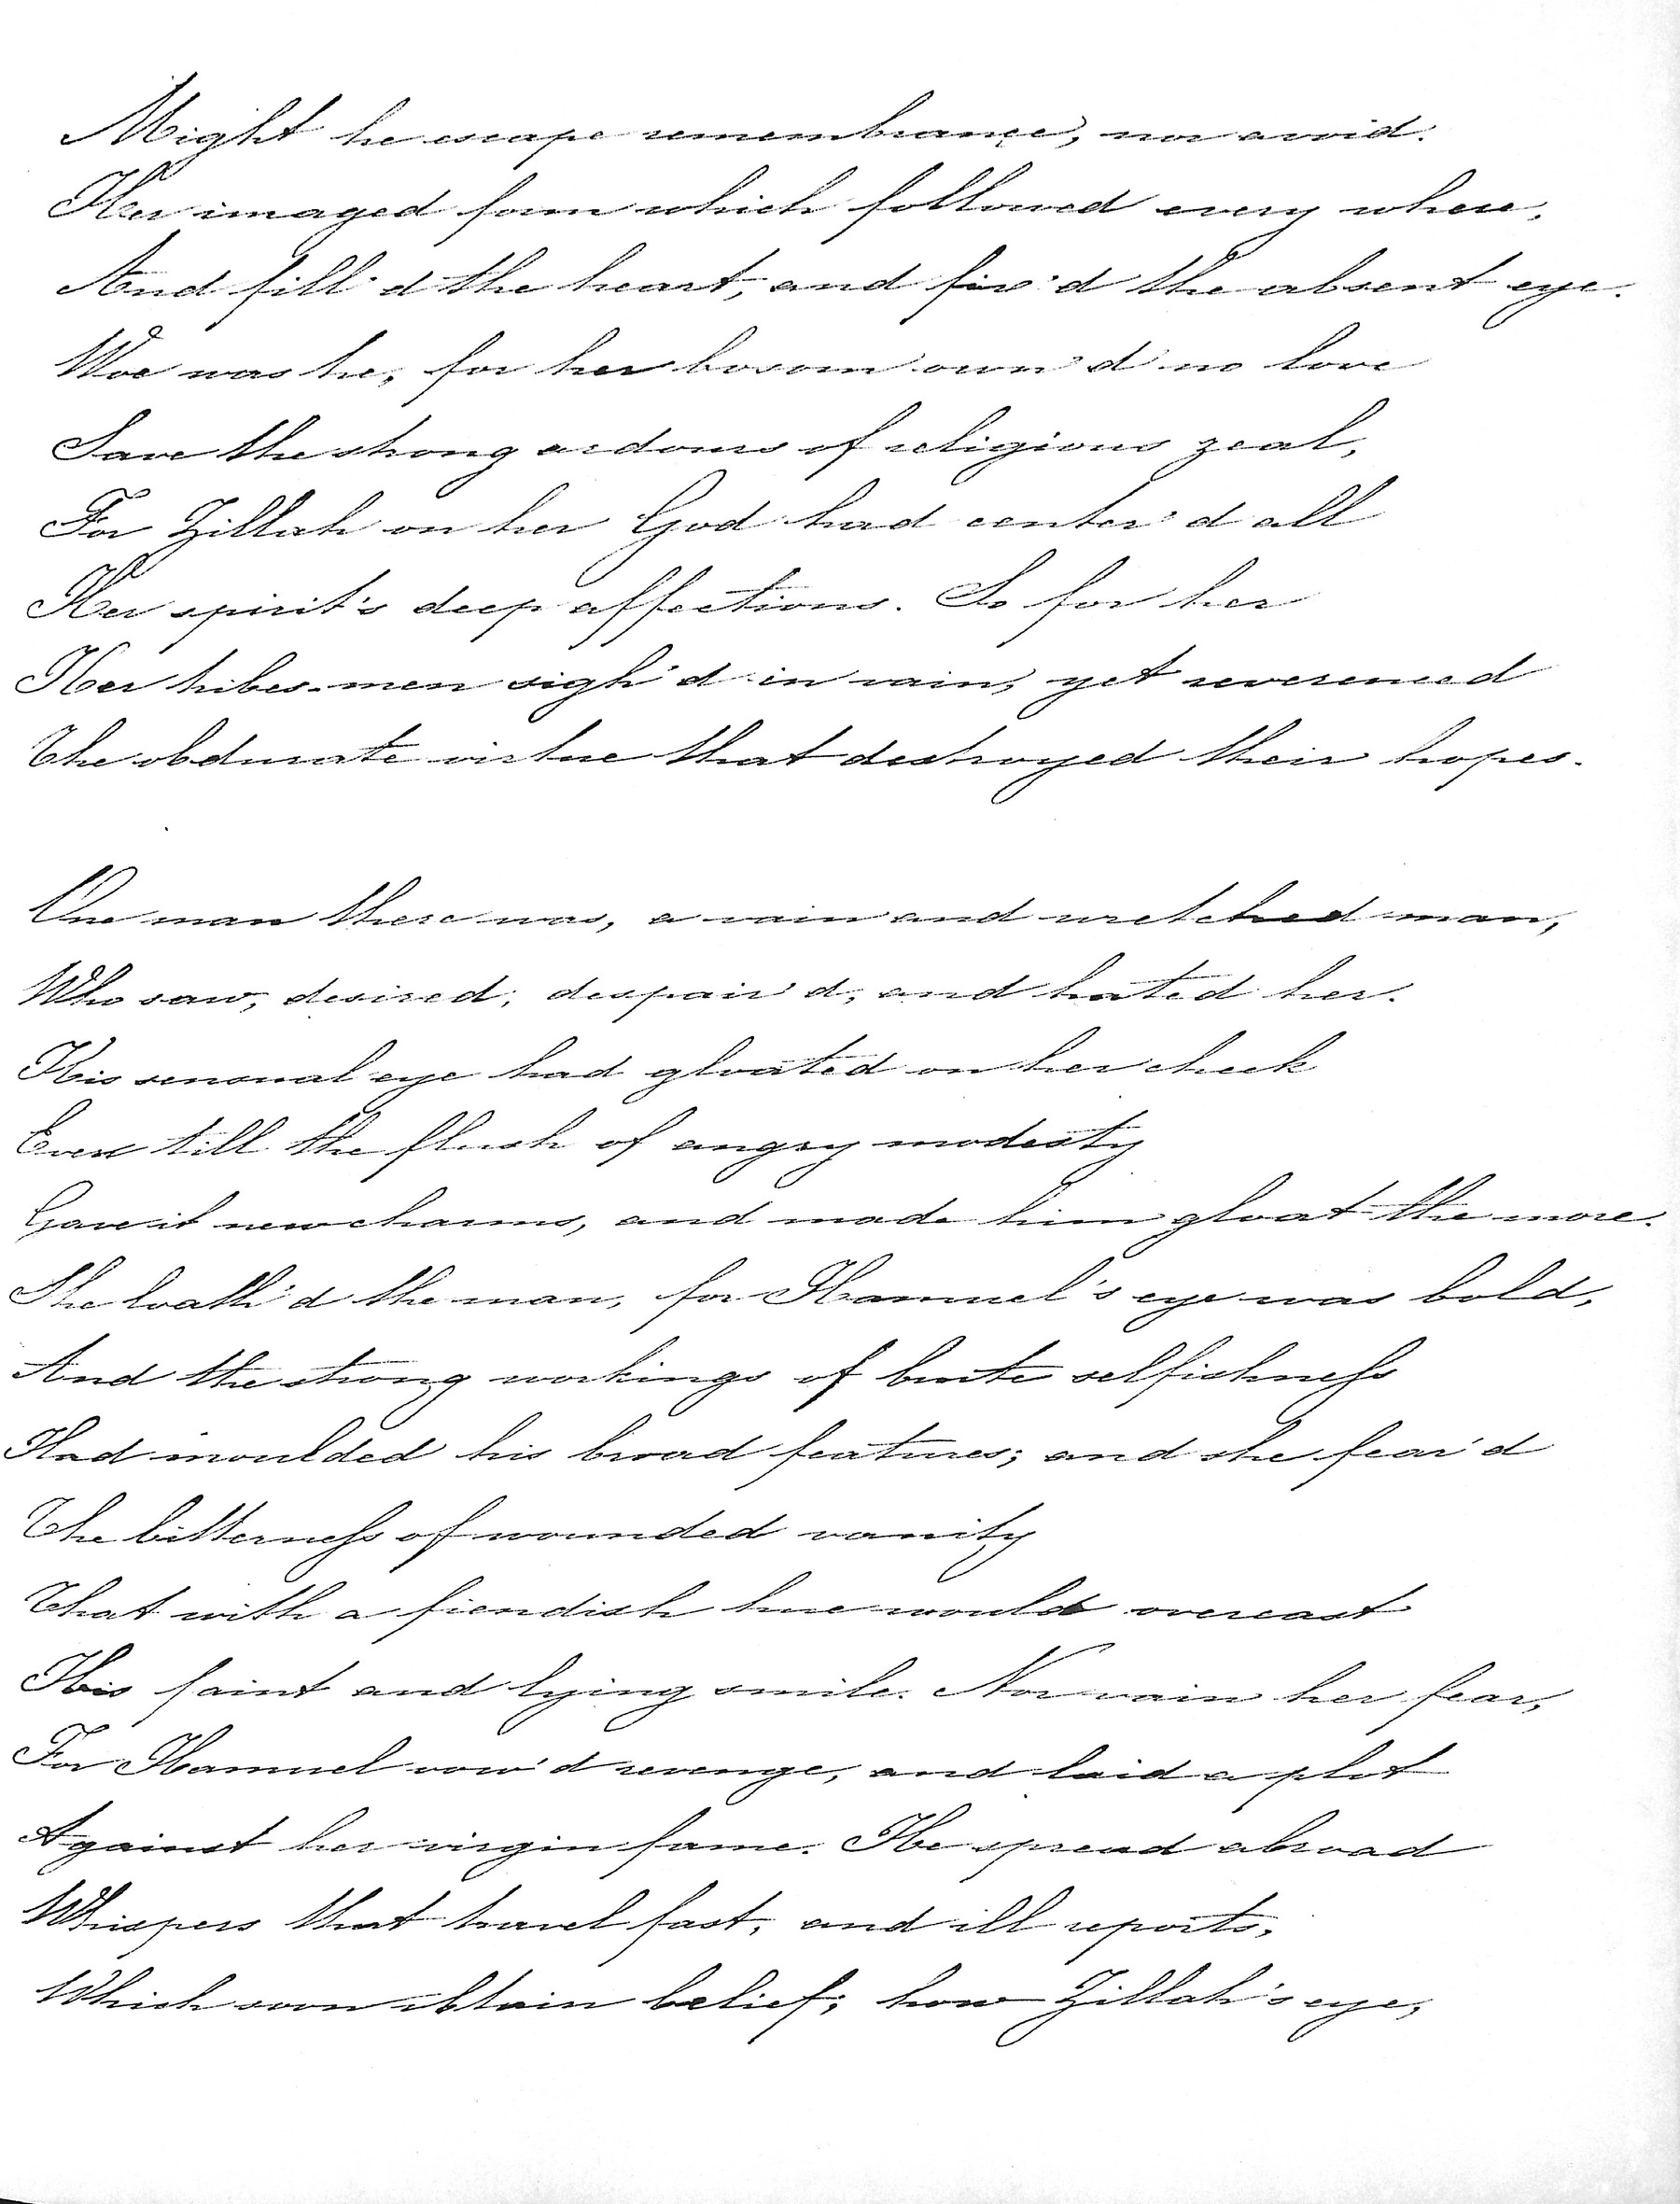 Might he escape remembrance, nor avoid.
Her imaged form which followed every where,
And fill'd the heart, and fix'd the absent eye.
Woe was he, for her bosom own'd no love
Save the strong ardours of religious zeal,
For Zillah on her God had center'd all
Her spirit's deep affections. So for her
Her tribes-men sigh'd in vain, yet reverenced
The obdurate virtue that destroyed their hopes.
One man there was, a vain and wretched man,
Who saw, desired, despair'd, and hated her.
His sensual eye had gloated on her cheek
Even till the flush of angry modesty
Gave it new charms, and made him gloat the more.
She loath'd the man, for Hamuel's eye was bold,
And the strong workings of brute selfishness
Had moulded his broad features; and she fear'd
The bitterness of wounded vanity
That with a fiendish hue would overcast
His faint and lying smile. Nor vain her fear,
For Hamuel vow'd revenge, and laid a plot
Against her virgin fame. He spread abroad
Whispers that travel fast, and ill reports,
Which soon obtain belief; how Zillah's eye,